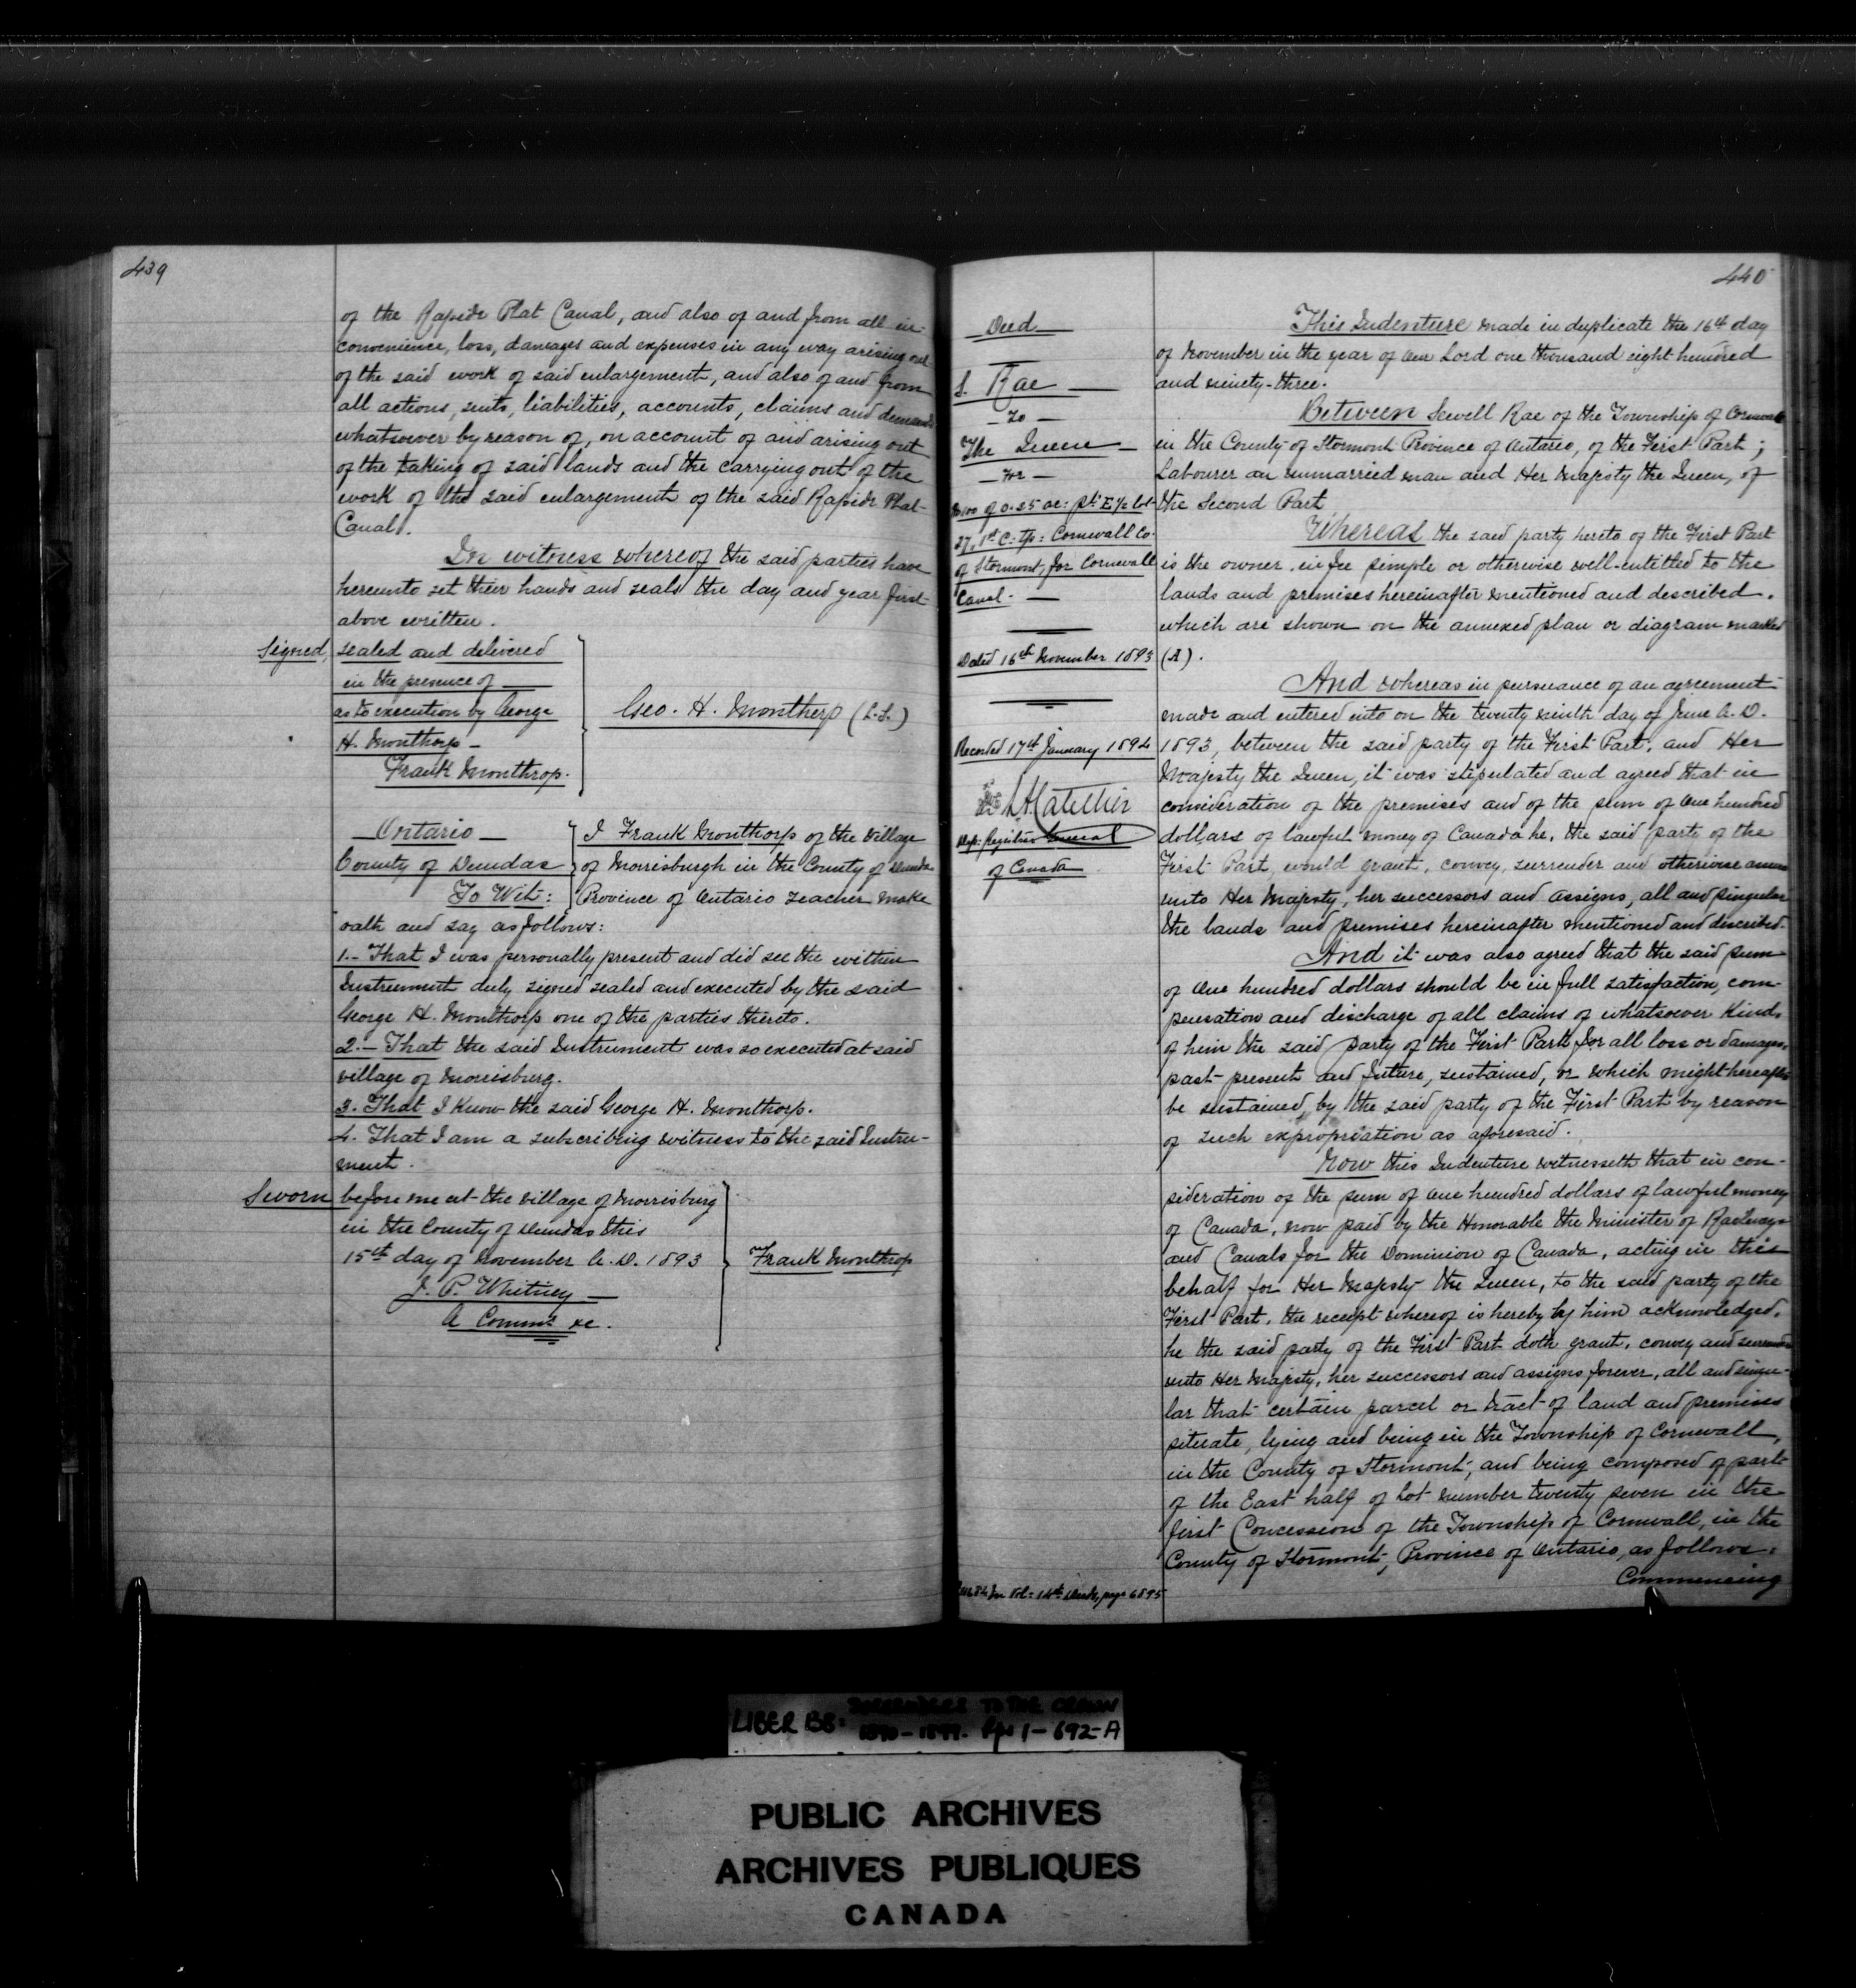 439
of the Rapide Plat Canal, and also of and from all in-
convenience, loss, damages and expenses in any way arising out
of the said work of said enlargement, and also of and from
all actions, suits, liabilities, accounts, claims and demands
whatsoever by reason of, on account of and arising out
of the taking of said lands and the carrying out of the
work of the said enlargement of the said Rapide Plat
Canal.
In witness whereof the said parties have
hereunto set their hands and seals the day and year first
above written.
Signed, sealed and delivered
in the presence of
as to execution by George
H. Monthorp
Frank Monthrop.
Geo. H. Monthorp (L.S.)
Ontario
County of Dundas
To Wit:
I Frank Monthorp of the Village
of Morrisburgh in the County of Dundas
Province of Ontario teacher make
oath and say as follows:
1.- That I was personally present and did see the within
Instrument duly signed sealed and executed by the said
George H. Monthorp one of the parties thereto.
2.- That the said Instrument was so executed at said
village of Morrisburg.
3. That I know the said George H. Monthorp.
4. That I am a subscribing witness to the said Instru-
ment.
Sworn before me at the village of Morrisburg
in the County of Dundas this
15th day of November A.D. 1893
J. P. Whitney
A Commr. &c.
Frank Monthrop
440
Deed
S. Rae
To
The Queen
For
$100 of 0.25 ac: pt. E 1/2 lot
27, 1st C: tp: Cornwall Co.
of Stormont, for Cornwall
Canal.
Dated 16th November 1893
Recorded 17th January 1894
Dep: Registrar General
of Canada
This Indenture made in duplicate the 16th day
of November in the year of Our Lord one thousand eight hundred
and ninety-three.
Between Sewell Rae of the Township of Cornwall
in the County of Stormont Province of Ontario, of the First Part;
Labourer an unmarried man and Her Majesty the Queen, of
the Second Part
Whereas the said party hereto of the First Part
is the owner in fee simple or otherwise well-entitled to the
lands and premises hereinafter mentioned and described,
which are shown on the annexed plan or diagram marked
(A).
And whereas in pursuance of an agreement
made and entered into on the twenty ninth day of June A.D.
1893, between the said party of the First Part, and Her
Majesty the Queen, it was stipulated and agreed that in
consideration of the premises and of the sum of One hundred
dollars of lawful money of Canada he, the said party of the
First Part, would grant, convey, surrender and otherwise assure
unto Her Majesty, her successors and assigns, all and singular
the lands and premises hereinafter mentioned and described.
And it was also agreed that the said sum
of One hundred dollars should be in full satisfaction, com-
pensation and discharge of all claims of whatsoever kinds
of him the said party of the First Part for all loss or damages,
past present and future, sustained, or which might hereafter
be sustained, by the said party of the First Part by reason
of such expropriation as aforesaid.
Now this Indenture witnesseth that in con-
sideration of the sum of One hundred dollars of lawful money
of Canada, now paid by the Honorable the Minister of Railways
and Canals for the Dominion of Canada, acting in this
behalf for Her Majesty the Queen, to the said party of the
First Part, the receipt whereof is hereby by him acknowledged,
he the said party of the First Part doth grant, convey and surrender
unto Her Majesty, her successors and assigns forever, all and singu-
lar that certain parcel or tract of land and premises
situate, lying and being in the Township of Cornwall,
in the County of Stormont, and being composed of part
of the East half of Lot number twenty seven in the
first Concession of the Township of Cornwall, in the
County of Stormont, Province of Ontario, as follows:
Commencing
LIBER BB: SURRENDERS TO THE CROWN
1890-1899. Pgs 1-692-A
PUBLIC ARCHIVES
ARCHIVES PUBLIQUES
CANADA